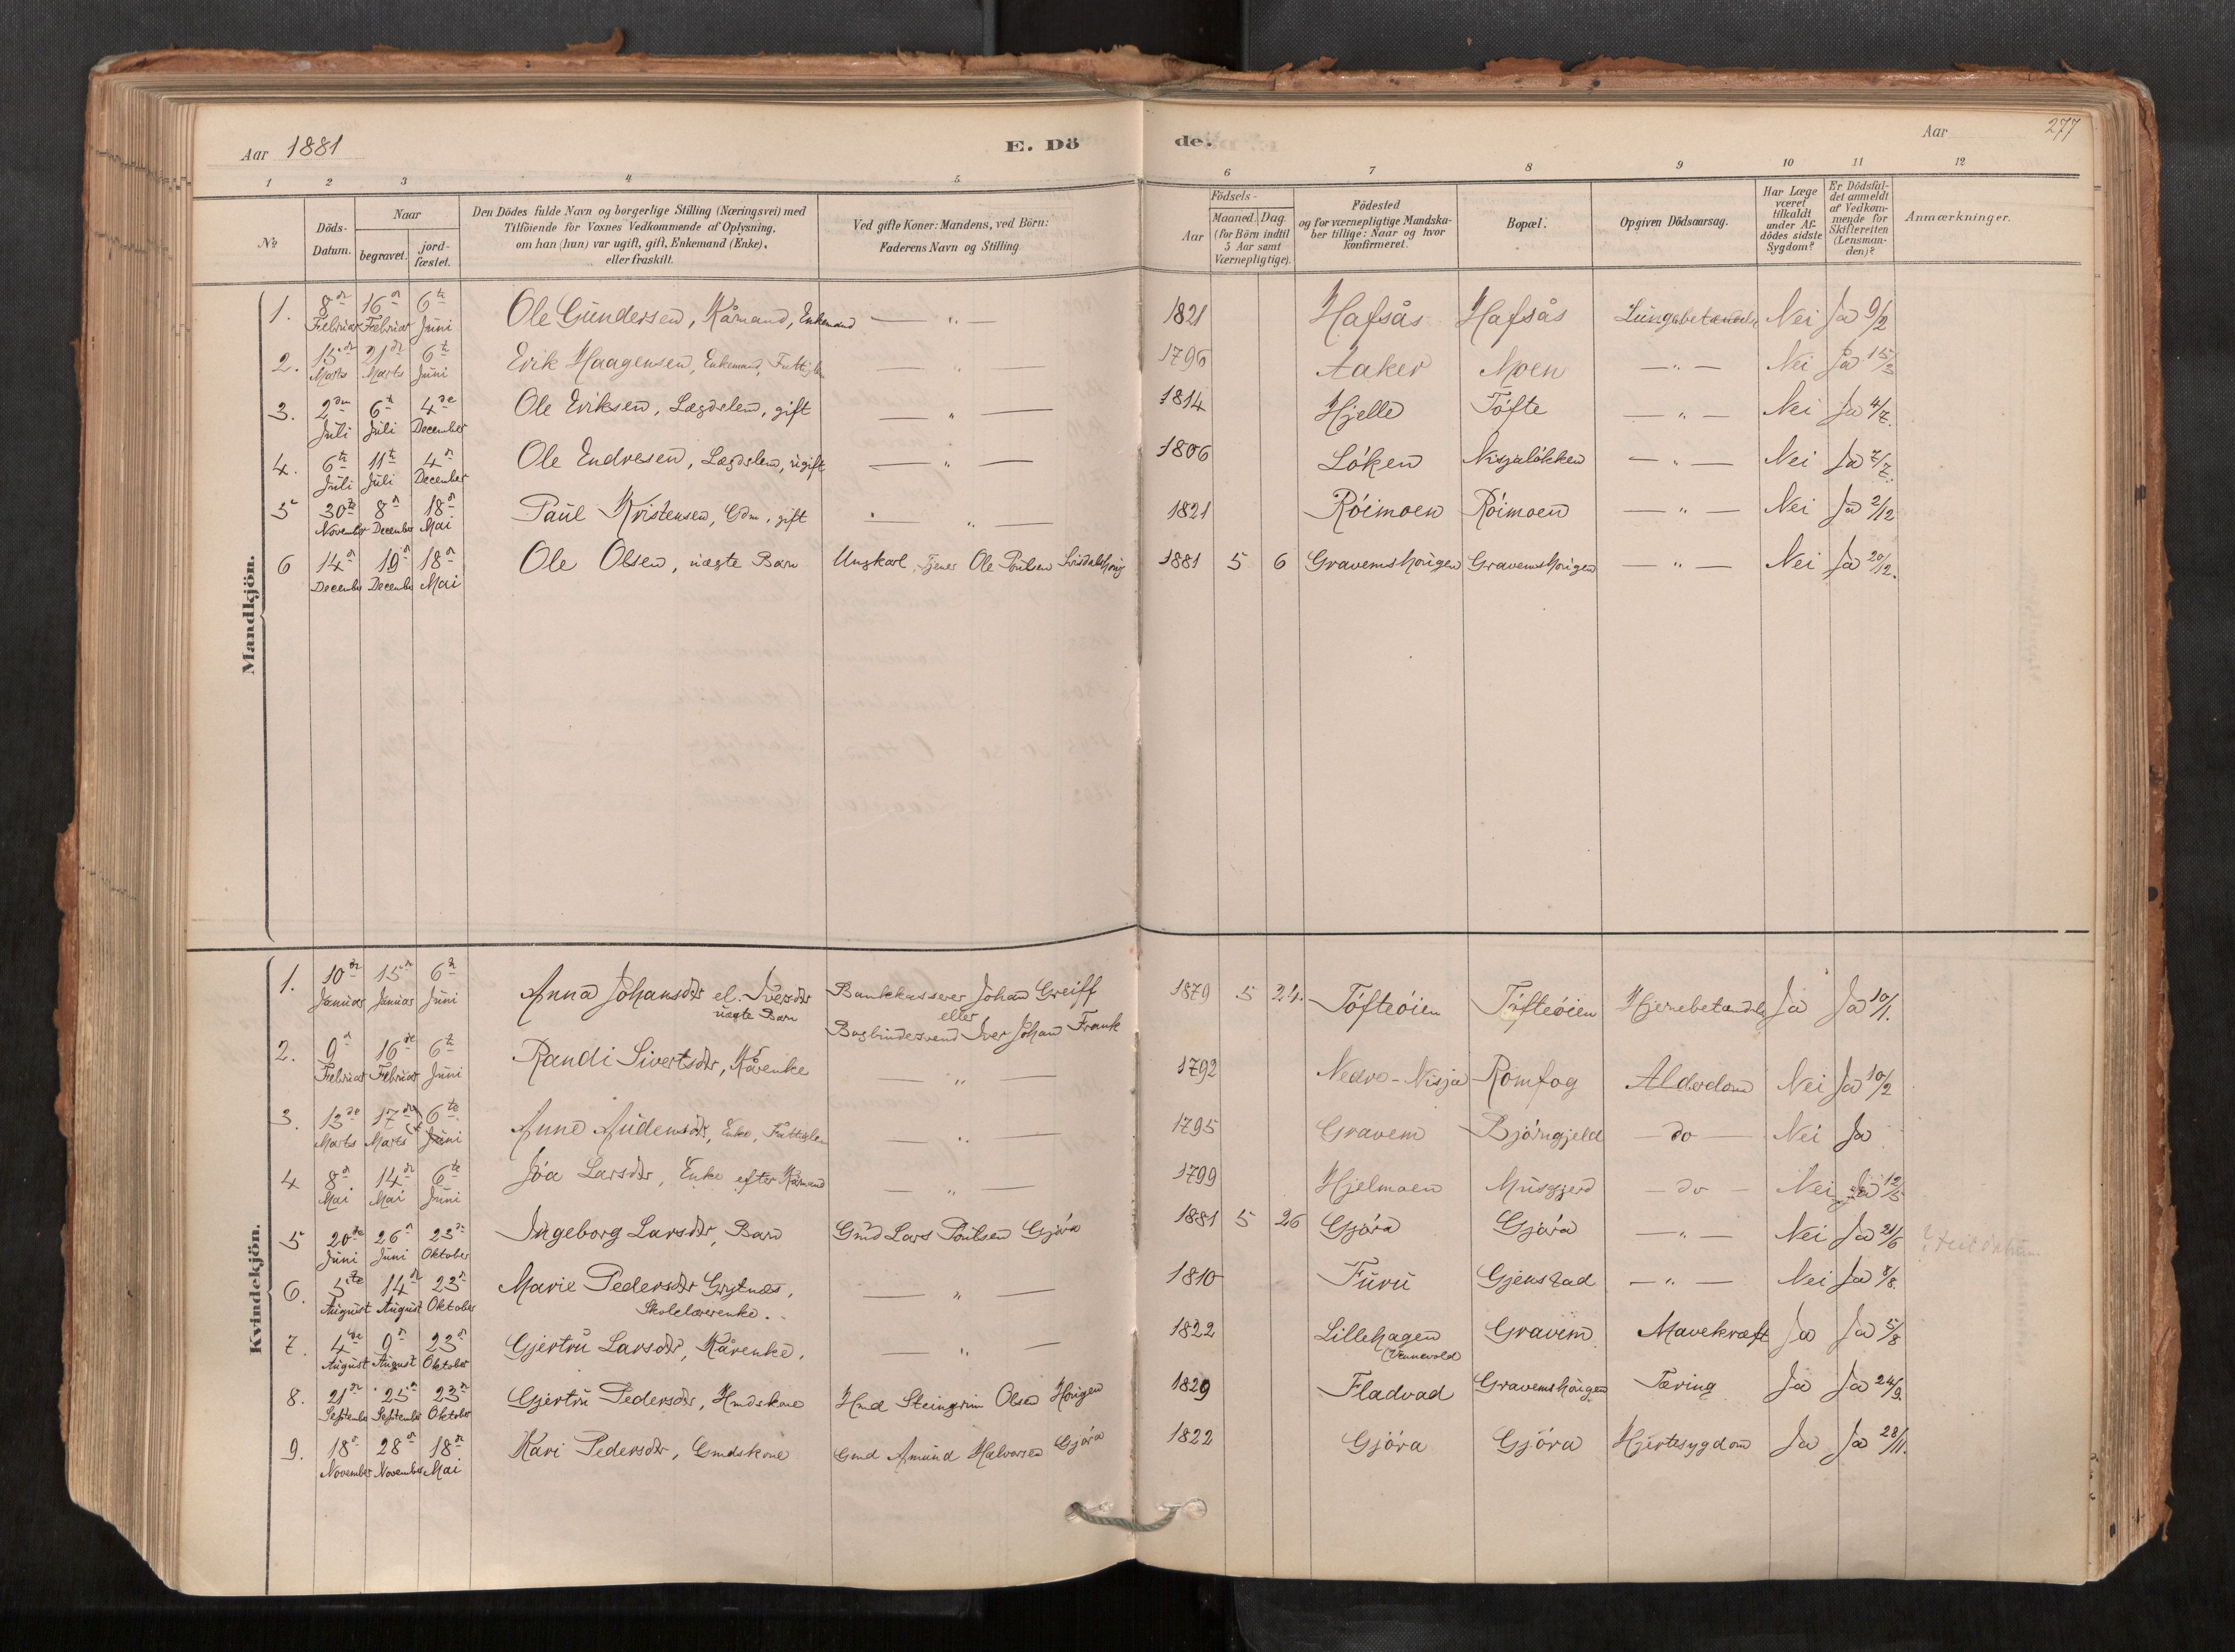 Aar 1881
E. Dö
de.
Aar
277
1 2 3 4 5 6 7 8 9 10 11 12
№
Döds-
Datum.
Naar
begravet.
jord-
fæstet.
Den Dödes fulde Navn og borgerlige Stilling (Næringsvei) med
Tilföiende for Voxnes Vedkommende af Oplysning,
om han (hun) var ugift, gift, Enkemand (Enke),
eller fraskilt.
Ved gifte Koner: Mandens, ved Börn:
Faderens Navn og Stilling.
Födsels-
Aar
Maaned. Dag.
(for Börn indtil
5 Aar samt
Værnepligtige).
Födested
og for værnepligtige Mandska-
ber tillige: Naar og hvor
konfirmeret.
Bopæl.
Opgiven Dödsaarsag.
Har Læge
været
tilkaldt
under Af-
dödes sidste
Sygdom?
Er Dödsfal-
det anmeldt
af Vedkom-
mende for
Skifteretten
(Lensman-
den)?
Anmærkninger.
Mandkjön.
1. 8de 16de 6te Ole Gundersen, Kårmand, Enkemand — " — 1821 Hafsås Hafsås Lungebetændels Nei Ja 9/2
Februar Februar Juni
2. 15de 21de 6te Erik Haagensen, Enkemand, — " — 1796 Aaker Moen — " — Nei Ja 15/3
Marts Marts Juni
3. 2den 6te 4de Ole Eriksen, Lægdslem, gift — " — 1814 Hjelle Töfte — " — Nei Ja 4/7.
Juli Juli December
4. 6te 11te 4de Ole Endresen, Lægdslem, ugift — " — 1806 Löken Nisjalökken — " — Nei Ja 7/7.
Juli Juli December
5 30te 8de 18de Paul Kristensen, Gdm, gift — " — 1821 Röimoen Röimoen — " — Nei Ja 2/12
November December Mai
6 14de 19de 18de Ole Olsen, uægte Barn Ungkarl, Tjener Ole Poulsen 1881 5 6 Gravemshougen Gravemshougen — " — Nei Ja 20/12.
December December Mai
Kvindekjön.
1. 10de 15de 6te Anna Johansdtr el. Iversdtr Bankkasserer Johan Greiff 1879 5 24. Töfteöien Töfteöien Hjernebetændels Ja Ja 10/1.
Januar Januar Juni uægte Barn eller
Bogbindersvend Iver Johan Frank
2. 9de 16de 6te Randi Sivertsdtr, Kårenke — " — 1792 Nedre-Nisja Romfog Alderdom Nei Ja 10/2
Februar Februar Juni
3. 13de 17de 6te Anne Audensdtr, Enke, — " — 1795 Gravem Björngjeld — do — Nei Ja
Marts Marts Juni
4 8de 14de 6te Jóa Larsdtr, Enke efter Kårmand — " — 1799 Hjelmoen Musgjerd — do — Nei Ja 12/5
Mai Mai Juni
5 20de 26de 23de Ingeborg Larsdtr, Barn Gmd Lars Poulsen Gjöra 1881 5 26 Gjöra Gjöra — " — Nei Ja 21/6
Juni Juni Oktober
6. 5te 14de 23de Marie Pedersdtr Grytnes, — " — 1810 Furu Gjenstad — " — Nei Ja 8/8.
August August Oktober Skolelærerenke.
7. 4de 9de 23de Gjertru Larsdtr, Kårenke, — " — 1822 Lillehagen Gravem Mavekræft Ja Ja 5/8
August August Oktober (Vennevold)
8. 21de 25de 23de Gjertru Pedersdtr, Hmdskone Hmd Steingrim Olsen Hougen 1829 Fladvad Gravemshougen Tæring Ja Ja 24/9.
September September Oktober
9. 18de 28de 18de Kari Pedersdtr, Gmdskone Gmd Amund Halvorsen Gjöra 1822 Gjöra Gjöra Hjertesygdom Ja Ja 28/11.
November November Mai